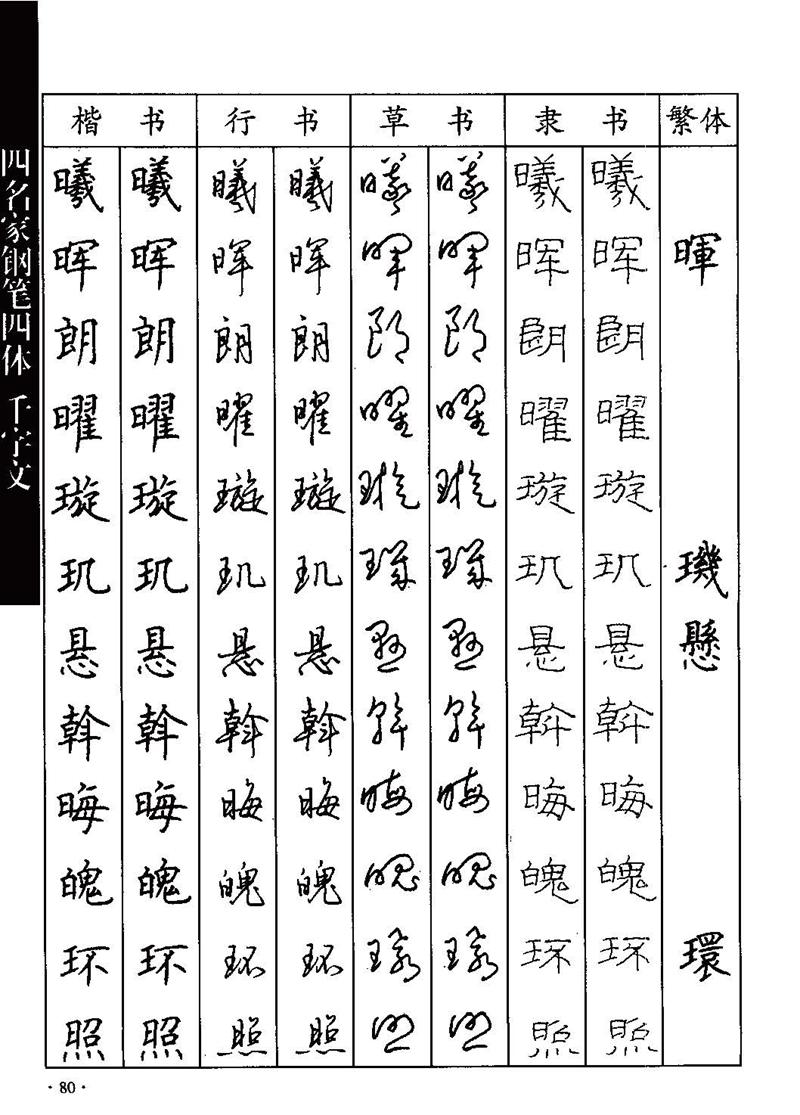 四名家钢笔四体 千字文
楷书 行书 草书 隶书 繁体
曦 曦 曦 曦 曦 曦 曦 曦
晖 晖 晖 晖 晖 晖 晖 晖 暉
朗 朗 朗 朗 朗 朗 朗 朗
曜 曜 曜 曜 曜 曜 曜 曜
璇 璇 璇 璇 璇 璇 璇 璇
玑 玑 玑 玑 璣 璣 玑 玑 璣
悬 悬 悬 悬 懸 懸 悬 悬 懸
斡 斡 斡 斡 斡 斡 斡 斡
晦 晦 晦 晦 晦 晦 晦 晦
魄 魄 魄 魄 魄 魄 魄 魄
环 环 环 环 環 環 环 环 環
照 照 照 照 照 照 照 照
·80·